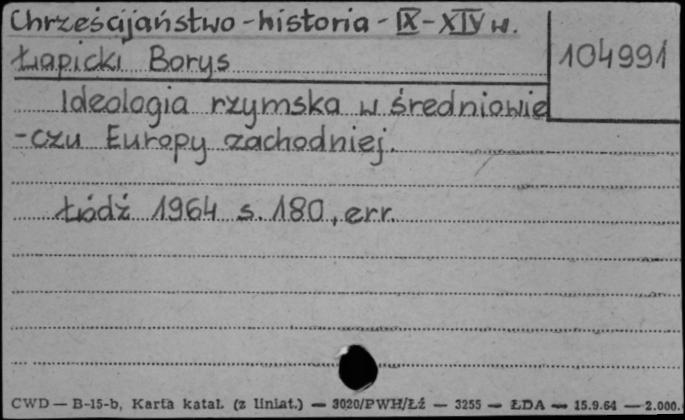 Chrześcijaństwo - historia - IX - XIV w.
Łapicki Borys
104991
Ideologia rzymska w średniowie
-czu Europy zachodniej.
Łódź 1964 s. 180, err.
CWD — B-15-b, Karta katal. (z liniat.) — 3020/PWH/Łź — 3255 — ŁDA — 15.9.64 — 2.000.